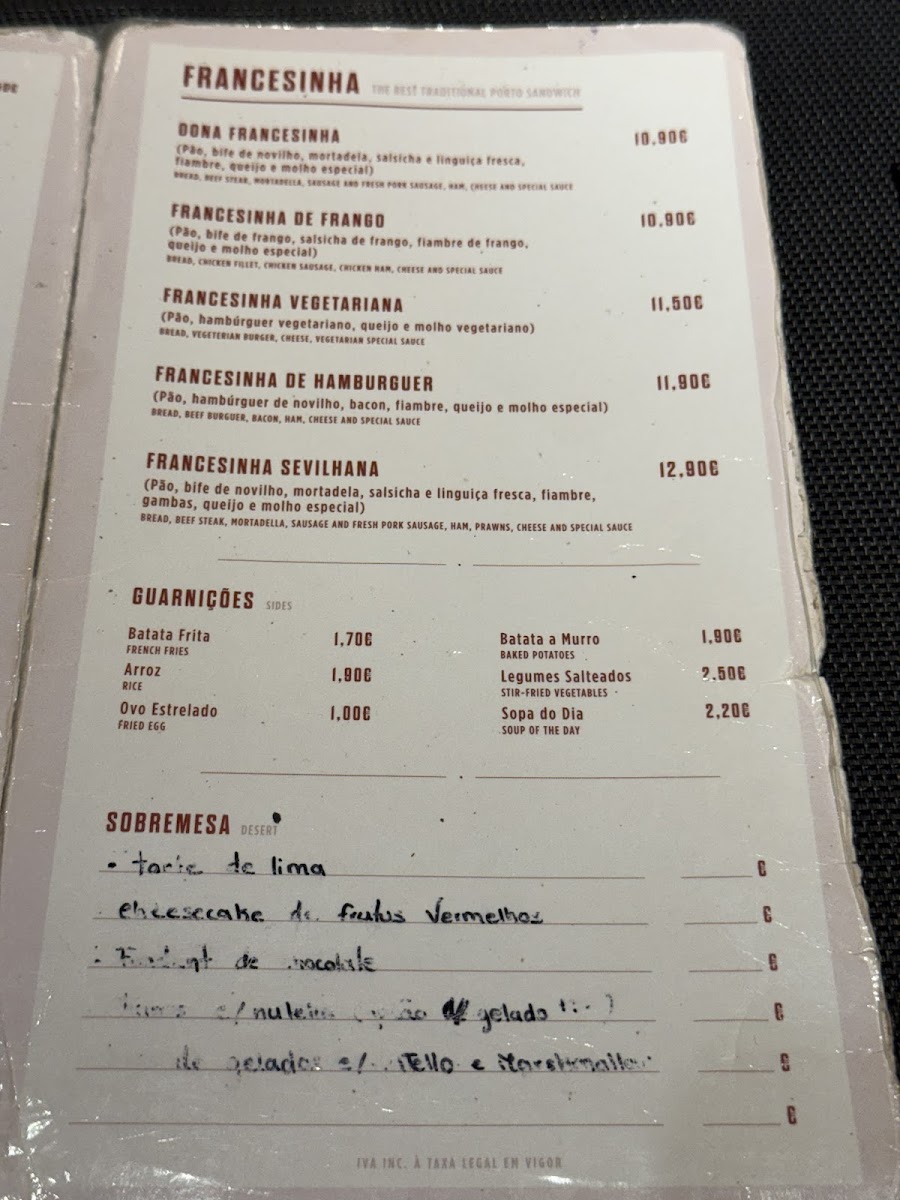 FRANCESINHA THE BEST TRADITIONAL PORTO SANDWICH
DONA FRANCESINHA 10,90€
(Pão, bife de novilho, mortadela, salsicha e linguiça fresca,
fiambre, queijo e molho especial)
BREAD, BEEF STEAK, MORTADELLA, SAUSAGE AND FRESH PORK SAUSAGE, HAM, CHEESE AND SPECIAL SAUCE
FRANCESINHA DE FRANGO 10,90€
(Pão, bife de frango, salsicha de frango, fiambre de frango,
queijo e molho especial)
BREAD, CHICKEN FILLET, CHICKEN SAUSAGE, CHICKEN HAM, CHEESE AND SPECIAL SAUCE
FRANCESINHA VEGETARIANA 11,50€
(Pão, hambúrguer vegetariano, queijo e molho vegetariano)
BREAD, VEGETERIAN BURGER, CHEESE, VEGETARIAN SPECIAL SAUCE
FRANCESINHA DE HAMBURGUER 11,90€
(Pão, hambúrguer de novilho, bacon, fiambre, queijo e molho especial)
BREAD, BEEF BURGUER, BACON, HAM, CHEESE AND SPECIAL SAUCE
FRANCESINHA SEVILHANA 12,90€
(Pão, bife de novilho, mortadela, salsicha e linguiça fresca, fiambre,
gambas, queijo e molho especial)
BREAD, BEEF STEAK, MORTADELLA, SAUSAGE AND FRESH PORK SAUSAGE, HAM, PRAWNS, CHEESE AND SPECIAL SAUCE
GUARNIÇÕES SIDES
Batata Frita 1,70€
FRENCH FRIES
Arroz 1,90€
RICE
Ovo Estrelado 1,00€
FRIED EGG
Batata a Murro 1,90€
BAKED POTATOES
Legumes Salteados 2,50€
STIR-FRIED VEGETABLES
Sopa do Dia 2,20€
SOUP OF THE DAY
SOBREMESA DESERT
• tarte de lima €
cheesecake de frutos Vermelhos €
de €
c/ gelado €
de gelados c/ e Marshmallow €
€
IVA INC. À TAXA LEGAL EM VIGOR